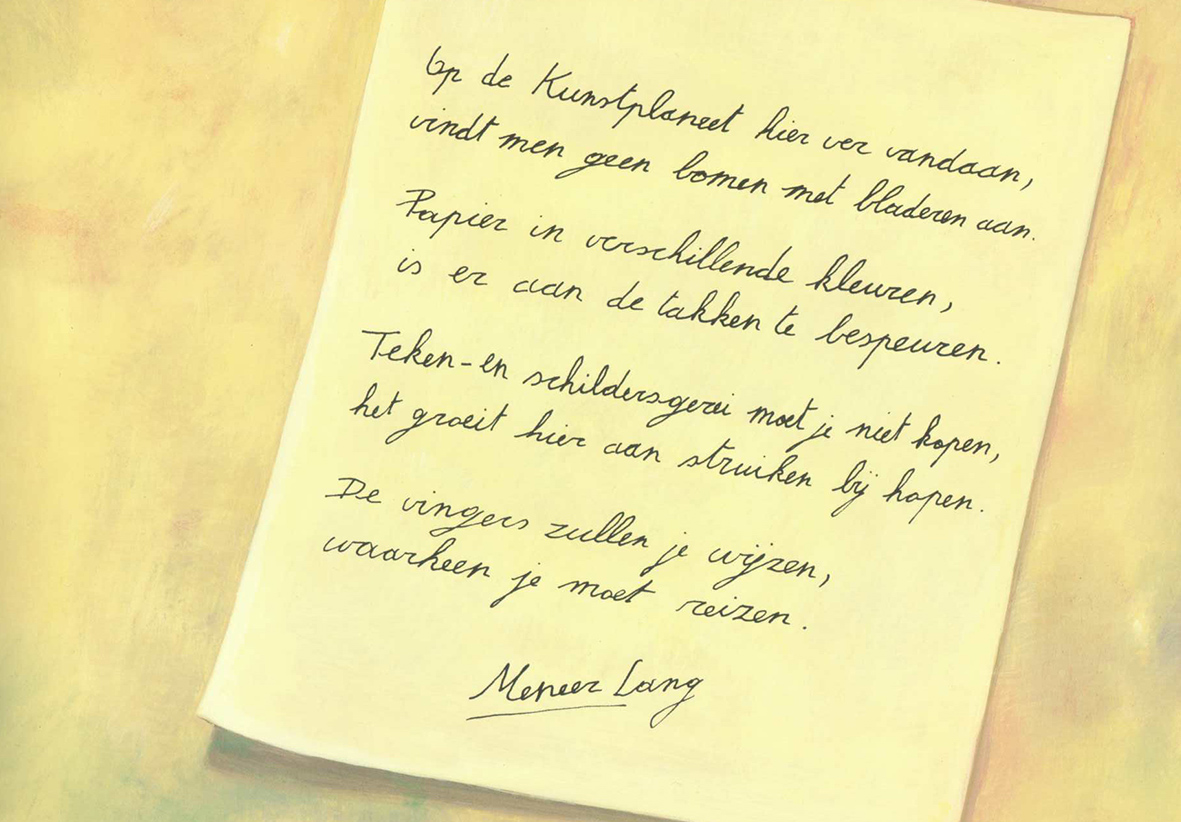 Op de Kunstplaneet hier ver vandaan,
vindt men geen bomen met bladeren aan.
Papier in verschillende kleuren,
is er aan de takken te bespeuren.
Teken-en schildersgerei moet je niet kopen,
het groeit hier aan struiken bij hopen.
De vingers zullen je wijzen,
waarheen je moet reizen.
Meneer Lang